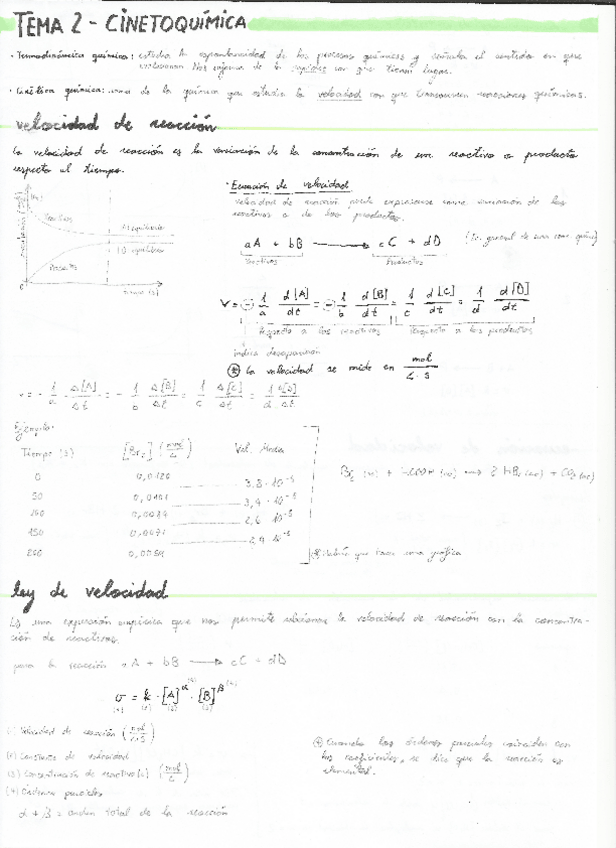 TEMA 2 - CINETOQUÍMICA
· Termodinámica química: estudia la espontaneidad de los procesos químicos y señala el sentido en que
evolucionan. Nos informa de la rapidez con que tienen lugar.
· Cinética química: rama de la química que estudia la velocidad con que transcurren reacciones químicas.
velocidad de reacción
La velocidad de reacción es la variación de la concentración de un reactivo o producto
respecto al tiempo.
· Ecuación de velocidad
velocidad de reacción puede expresarse como de los
reactivos o de los productos.
Reactivos
equilibrio
equilibrio
tiempo (s)
aA + bB → cC + dD
Reactivos Productos
v = - 1/a d[A]/dt = - 1/b d[B]/dt = 1/c d[C]/dt = 1/d d[D]/dt
Respecto a los reactivos Respecto a los productos
indica desaparición
* La velocidad se mide en mol/L·s
v = - 1/a Δ[A]/Δt = - 1/b Δ[B]/Δt = 1/c Δ[C]/Δt = 1/d Δ[D]/Δt
Ejemplo:
Tiempo (s) [Br₂] (mol/L) Vel. Media
0 0,0120
3,8·10⁻⁵
50 0,0101
3,4·10⁻⁵
2,6·10⁻⁵
150 0,0071
2,4·10⁻⁵
ley de velocidad
Es una expresión empírica que nos permite relacionar la velocidad de reacción con la concentra-
ción de reactivos.
para la reacción aA + bB → cC + dD
v = k · [A]^α · [B]^β
(1) Velocidad de reacción (mol/L·s)
(2) Constante de velocidad
(3) Concentración de reactivo(s) (mol/L)
(4) Órdenes parciales
α + β = orden total de la reacción
* Cuando los órdenes parciales coinciden con
los coeficientes, se dice que la reacción es
elemental.